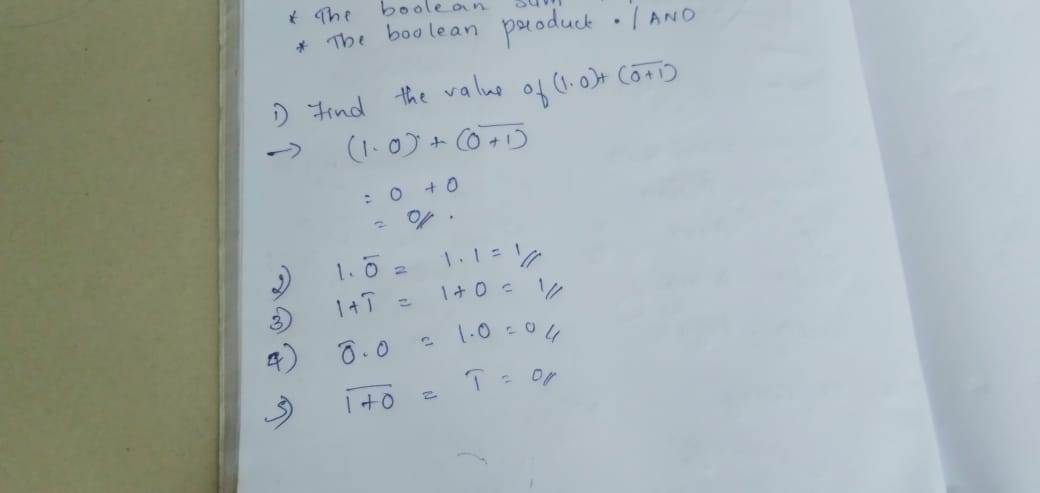 * The boolean sum
* The boolean product . / AND
1) Find the value of (1.0)+ (0̅+̅1̅)
→ (1.0) + (0̅+̅1̅)
= 0 + 0
= 0//.
2) 1.0̅ = 1.1 = 1//
3) 1+1̅ = 1+0 = 1//
4) 0̅.0 = 1.0 = 0//
5) 1̅+̅0̅ = 1̅ = 0//